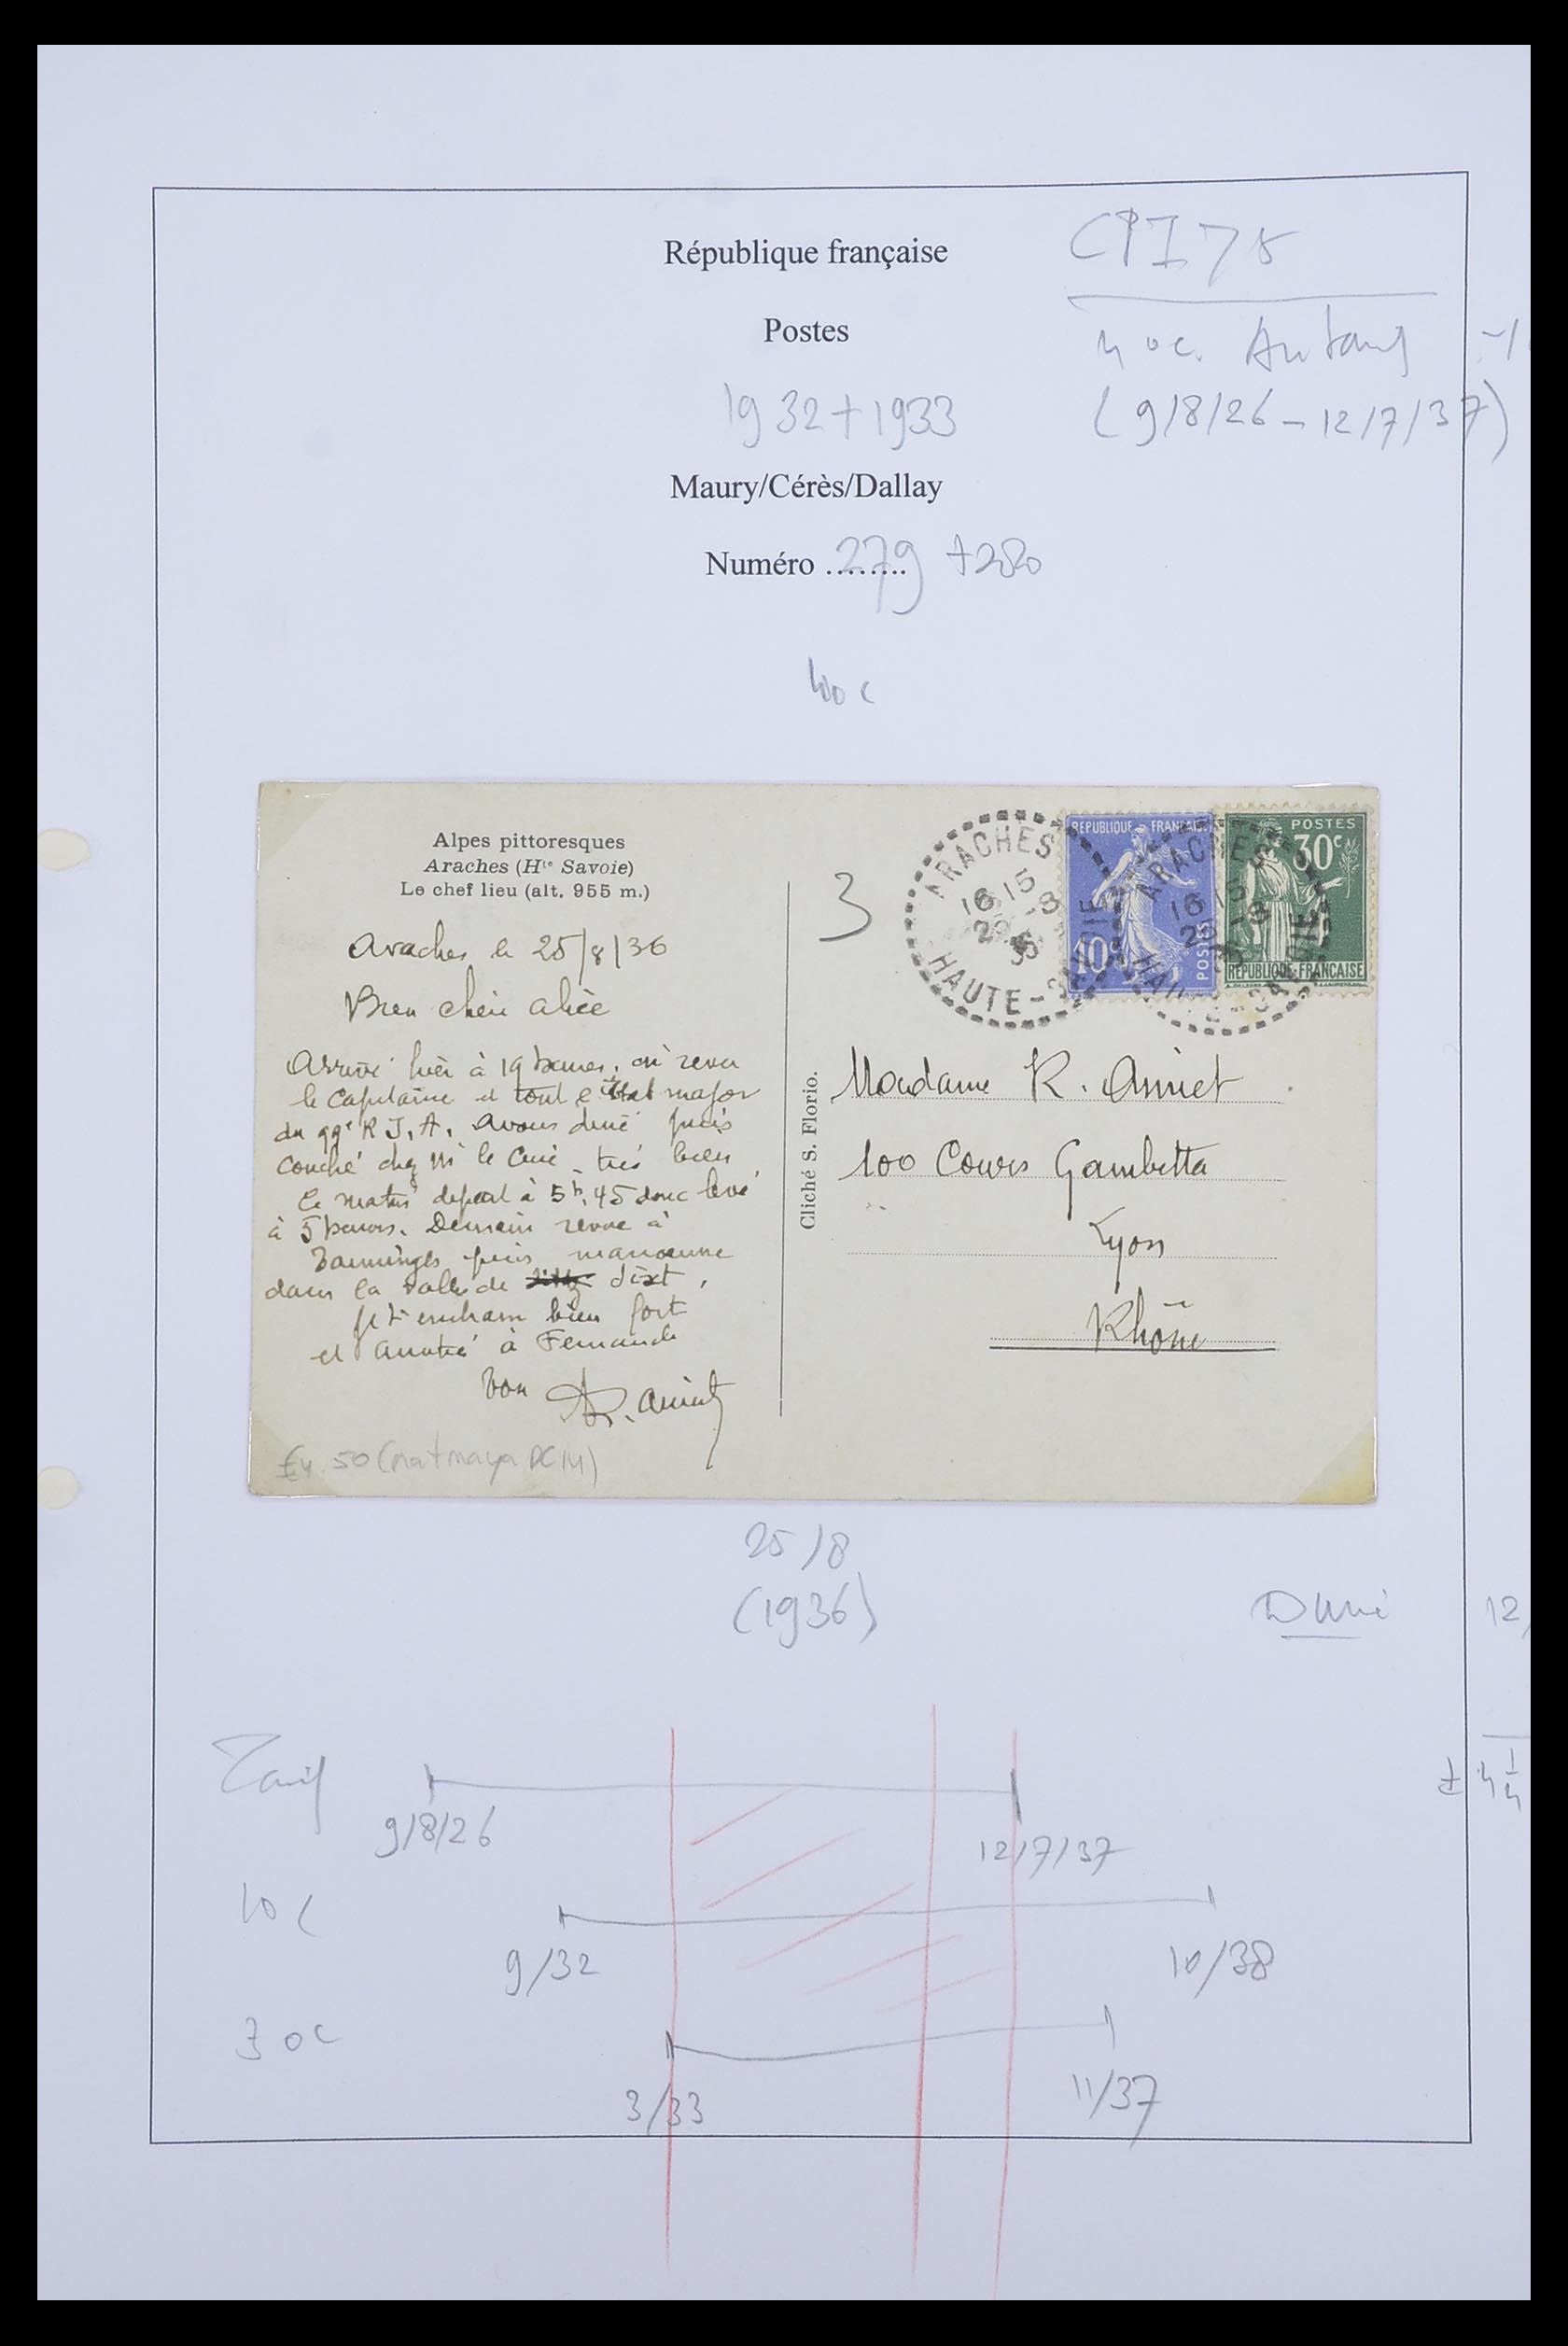 République française
CPI 75
Postes
40c. Autant
1932+1933
(9/8/26 – 12/7/37)
Maury/Cérès/Dallay
Numéro ........ 279 +280
40c
Alpes pittoresques
Araches (Hte Savoie)
Le chef lieu (alt. 955 m.)
Araches le 25/8/36
Bien chère alice
Arrivé hier à 19 heures, ai revu
le Capitaine et tout e état major
du 99e R.I.A. Avons diné puis
couché chez Mr le Curé très bien
Ce matin départ à 5h,45 donc levé
à 5 heures. Demain revue à
Taninges puis manoeuvre
dans la vallée de dixt,
je t'embrasse bien fort
et amitié à Fernande
Ton R. Amiet
£4.50
3
ARACHES
16 15
HAUTE-SAVOIE
REPUBLIQUE FRANÇAISE
10
POSTES
ARACHES
16 15
HAUTE-SAVOIE
POSTES
30c
REPUBLIQUE FRANÇAISE
Cliché S. Florio.
Madame R. Amiet
100 Cours Gambetta
Lyon
Rhône
25/8
(1936)
12
Tarif
9/8/26
12/7/37
10c
9/32
10/38
30c
3/33
11/37